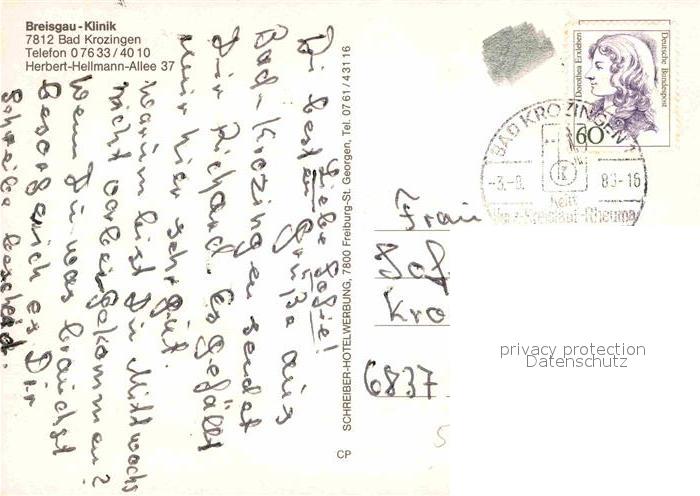 Breisgau-Klinik
7812 Bad Krozingen
Telefon 0 76 33 / 40 10
Herbert-Hellmann-Allee 37
Liebe Sofie!
Die besten Grüße aus
Bad-Krozingen sendet
Dir Richard. Es gefällt
mir hier sehr gut.
Warum bist Du Mittwochs
nicht vorbeigekommen?
Wenn Du was brauchst
besorge ich es Dir
Schreibe bescheid.
SCHREIBER-HOTELWERBUNG, 7800 Freiburg-St. Georgen, Tel. 07 61 / 4 31 16
CP
Dorothea Erxleben
Deutsche Bundespost
60
BAD KROZINGEN 1
-3.-8.
8
-16
heilt
Herz-Kreislauf-Rheuma
Frau
Sof
Kro
6837
5
privacy protection
Datenschutz